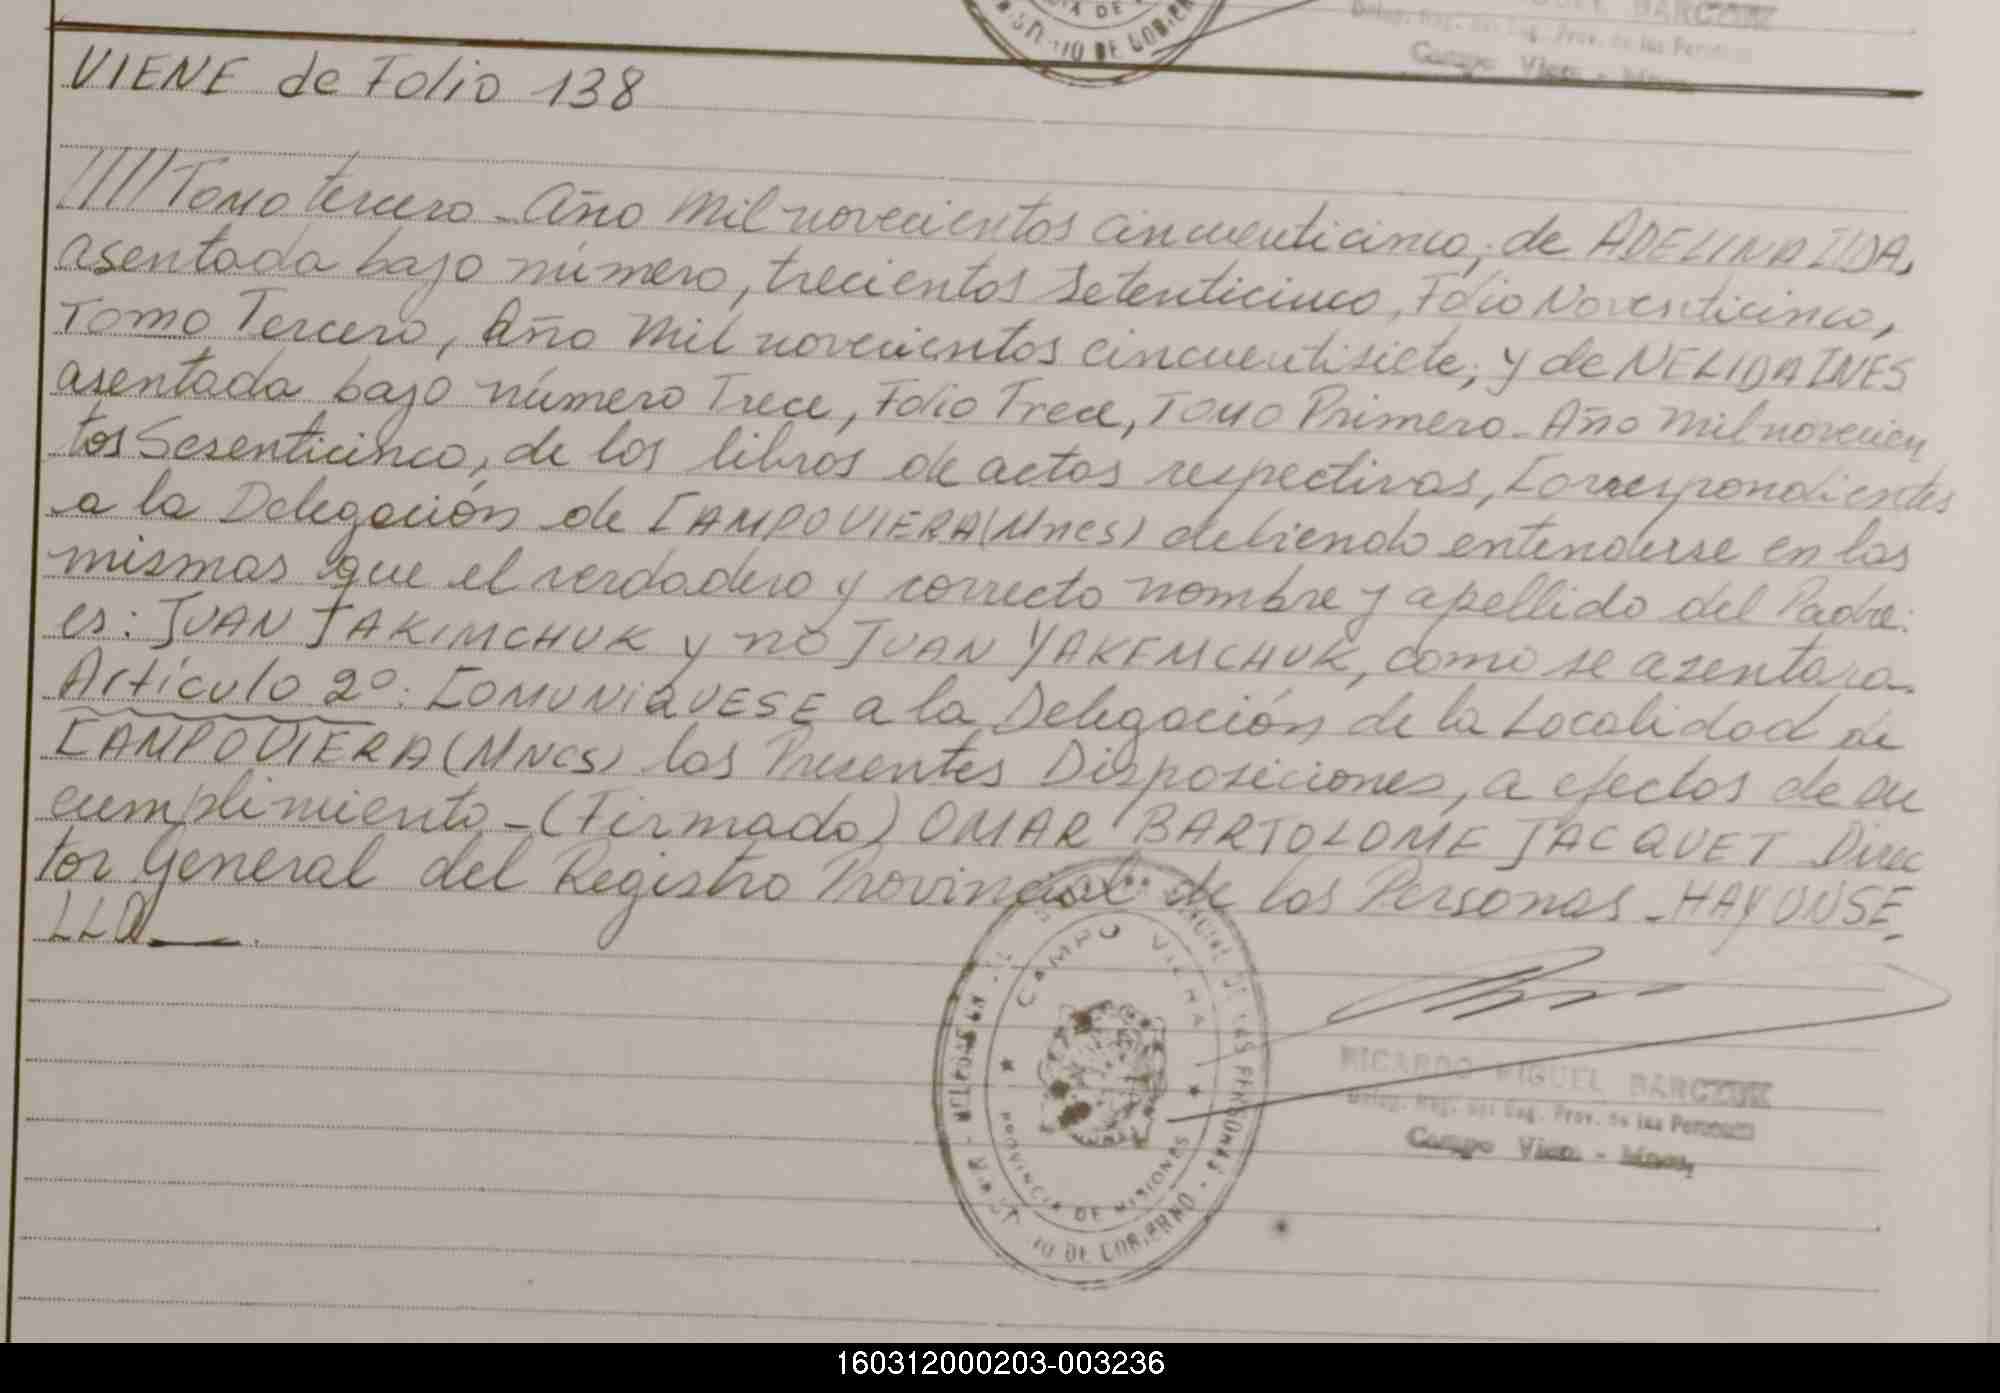 DE GOBIER
GUEL BARCZUK
Deleg. Reg. del Reg. Prov. de las Personas
Campo Viera - Mnes.
VIENE de Folio 138
////Tomo tercero - Año Mil novecientos cincuenticinco, de ADELINA ILDA,
asentada bajo número, trecientos setenticinco, Folio Noventicinco,
Tomo Tercero, Año Mil novecientos cincuentisiete; y de NELIDA INES
asentada bajo número Trece, Folio Trece, Tomo Primero - Año Mil novecien
tos Sesenticinco, de los libros de actas respectivas, Correspondientes
a la Delegación de CAMPO VIERA (Mnes) debiendo entenderse en las
mismas que el verdadero y correcto nombre y apellido del Padre:
es: JUAN JAKIMCHUK y no JUAN YAKEMCHUK, como se asentara.
Artículo 2º: COMUNIQUESE a la Delegación de la Localidad de
CAMPO VIERA (Mnes) las Presentes Disposiciones, a efectos de su
cumplimiento - (Firmado) OMAR BARTOLOME JACQUET Direc
tor General del Registro Provincial de las Personas - HAY UN SE
LLO.
CAMPO VIERA
PROVINCIA DE MISIONES
DE LAS PERSONAS - DE GOBIERNO
RICARDO MIGUEL BARCZUK
Deleg. Reg. del Reg. Prov. de las Personas
Campo Viera - Mnes.
160312000203-003236